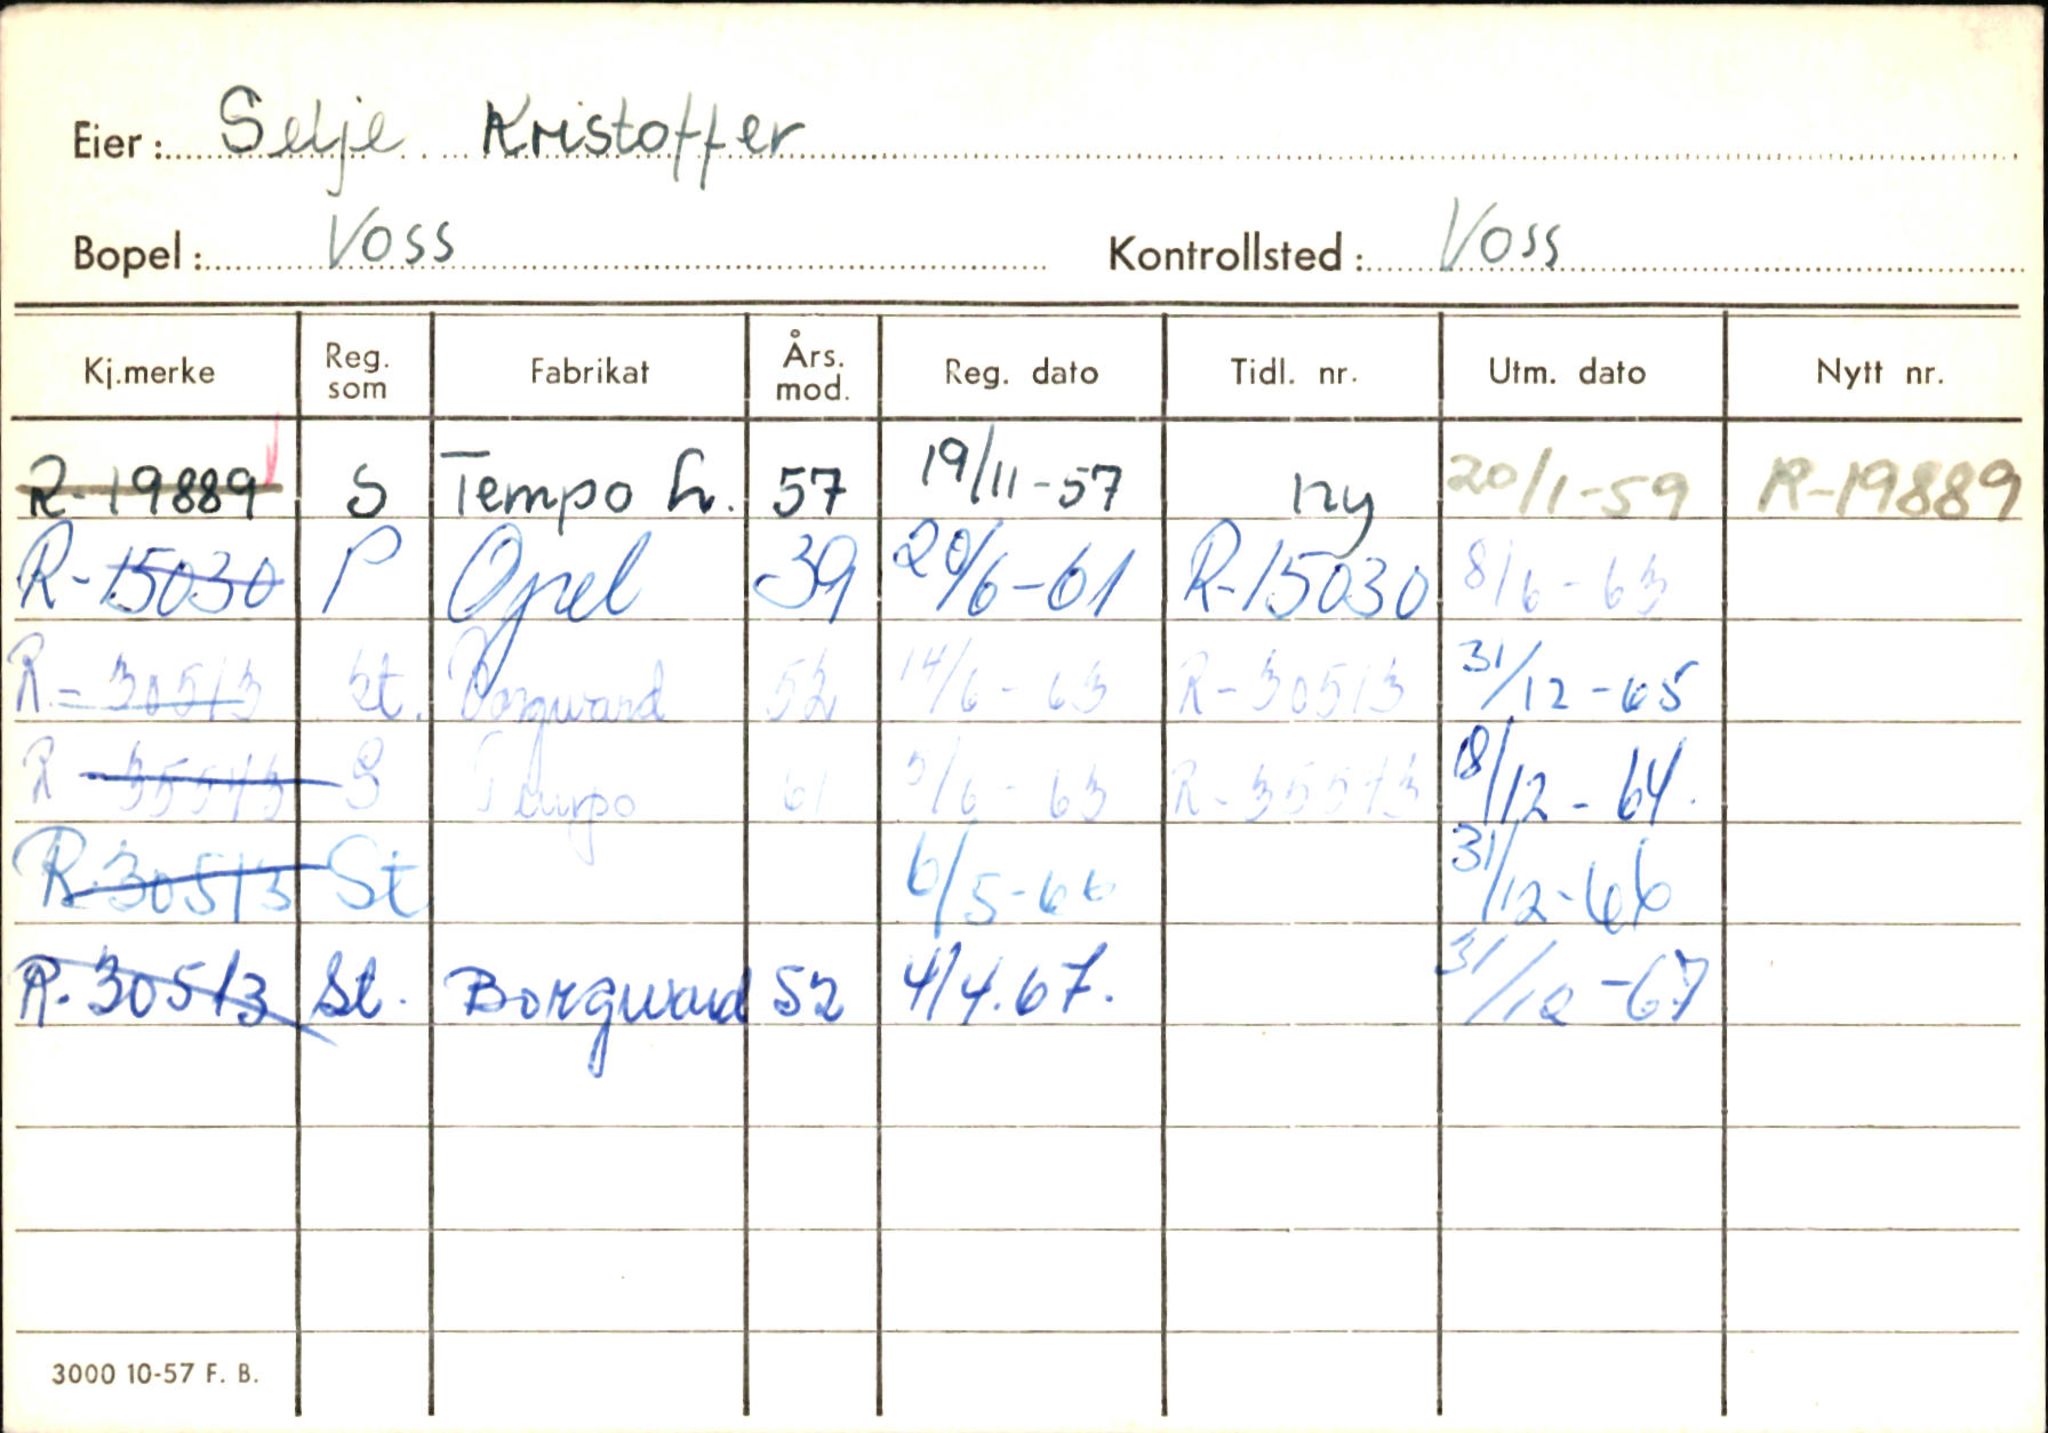 Eier: Selje Kristoffer
Bopel: Voss Kontrollsted: Voss
Kj.merke Reg. som Fabrikat Års. mod. Reg. dato Tidl. nr. Utm. dato Nytt nr.
R-19889 S Tempo h. 57 19/11-57 ny 20/1-59 R-19889
R-15030 P Opel 39 20/6-61 R-15030 8/6-63
R-30513 St. Borgward 52 14/6-63 R-30513 31/12-65
R-35543 S Tempo 61 5/6-63 R-35543 18/12-64.
R-30513 St 6/5-66 31/12-66
R-30513 St. Borgward 52 4/4.67. 31/12-67
3000 10-57 F. B.